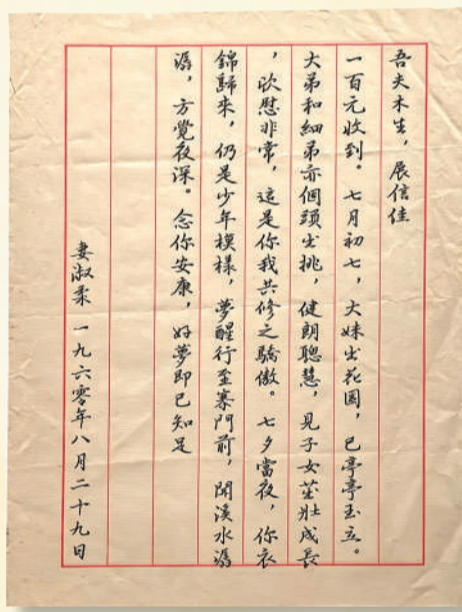 吾夫木生，展信佳
一百元收到。七月初七，大妹出花园，已亭亭玉立。
大弟和细弟亦個頭出挑，健朗聰慧，見子女茁壯成長
，欣慰非常，這是你我共修之驕傲。七夕當夜，你衣
錦歸來，仍是少年模樣，夢醒行至寨門前，聞溪水潺
潺，方覺夜深。念你安康，好夢即已知足
妻淑柔 一九六零年八月二十九日